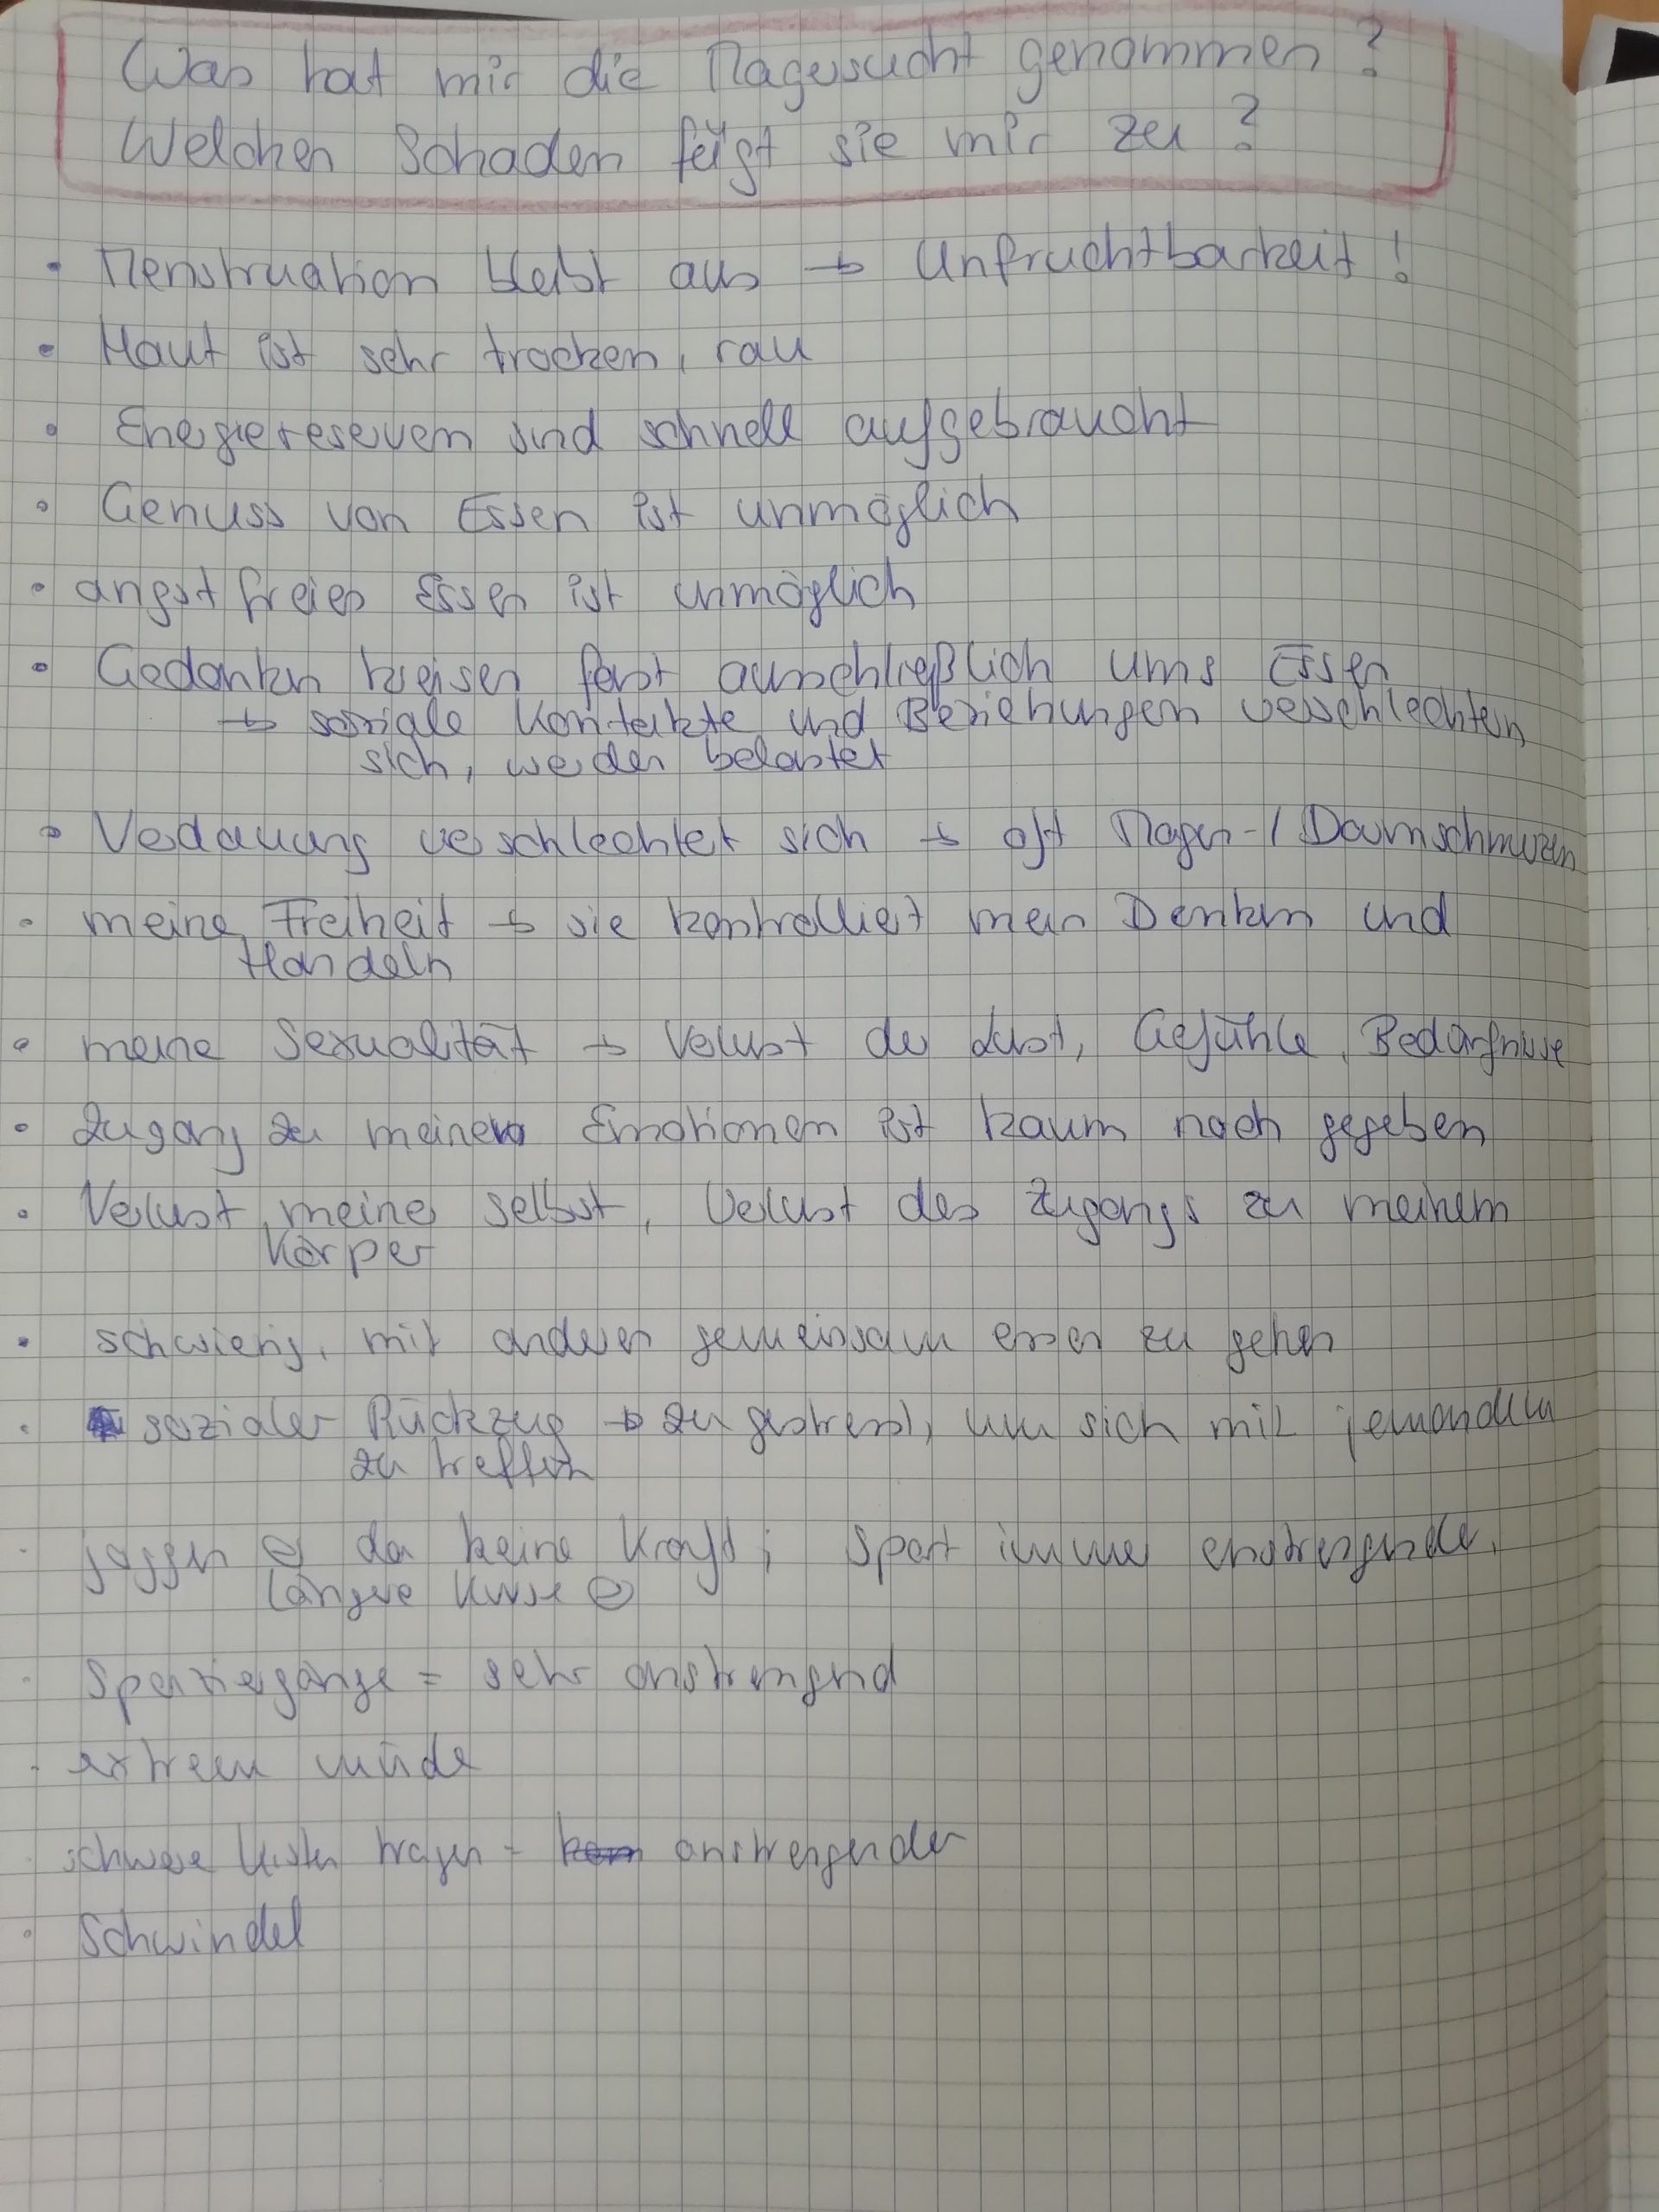 Was hat mir die Magersucht genommen?
Welchen Schaden fügt sie mir zu?
• Menstruation bleibt aus → Unfruchtbarkeit!
• Haut ist sehr trocken, rau
• Energiereserven sind schnell aufgebraucht
• Genuss von Essen ist unmöglich
• angstfreies Essen ist unmöglich
• Gedanken kreisen fast ausschließlich ums Essen
→ soziale Kontakte und Beziehungen verschlechtern
sich, werden belastet
• Verdauung verschlechtert sich → oft Magen-/Darmschmerzen
• meine Freiheit → sie kontrolliert mein Denken und
Handeln
• meine Sexualität → Verlust der Lust, Gefühle, Bedürfnisse
• Zugang zu meinen Emotionen ist kaum noch gegeben
• Verlust meiner selbst, Verlust des Zugangs zu meinem
Körper
• schwierig, mit anderen gemeinsam essen zu gehen
• sozialer Rückzug → zu gestresst, um sich mit jemandem
zu treffen
• joggen ☹ da keine Kraft; Sport immer anstrengender,
längere Kurse ☹
• Spaziergänge = sehr anstrengend
• extrem müde
• schwere Kisten tragen = anstrengender
• Schwindel